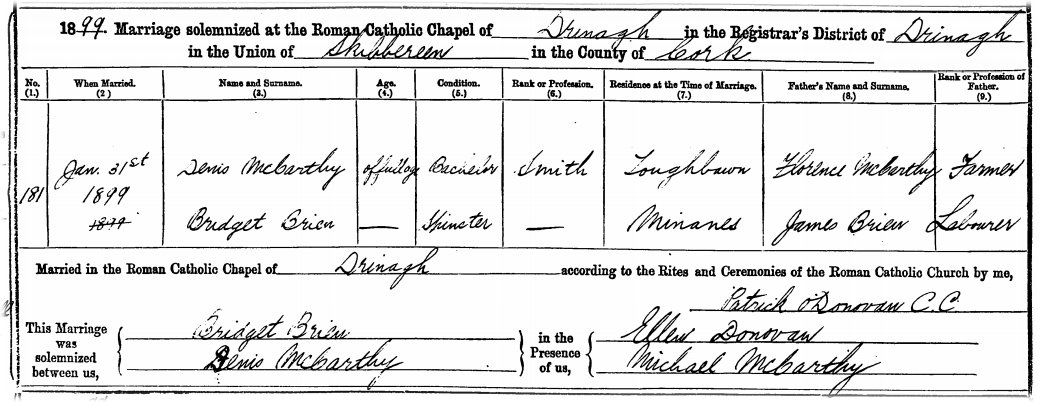 1899. Marriage solemnized at the Roman Catholic Chapel of Drinagh in the Registrar's District of Drinagh
in the Union of Skibbereen in the County of Cork
No. (1.) When Married. (2) Name and Surname. (3.) Age. (4.) Condition. (5.) Rank or Profession. (6.) Residence at the Time of Marriage. (7.) Father's Name and Surname. (8.) Rank or Profession of Father. (9.)
181 Jan. 31st 1899 Denis McCarthy of full age Bachelor Smith Toughbawn Florence McCarthy Farmer
1899 Bridget Brien — Spinster — Minanes James Brien Labourer
Married in the Roman Catholic Chapel of Drinagh according to the Rites and Ceremonies of the Roman Catholic Church by me,
Patrick O'Donovan C.C.
This Marriage was solemnized between us,
Bridget Brien
Denis McCarthy
in the Presence of us,
Ellen Donovan
Michael McCarthy